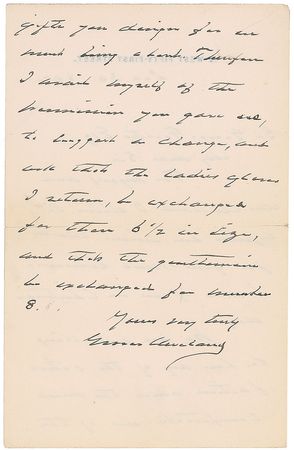 gifts you design for us
must bring about. Therefore
I avail myself of the
permission you gave us,
to suggest a change, and
ask that the ladies gloves
I return, be exchanged
for them 6 1/2 in size,
and that the gentlemens
be exchanged for number
8.
Yours very truly
Grover Cleveland